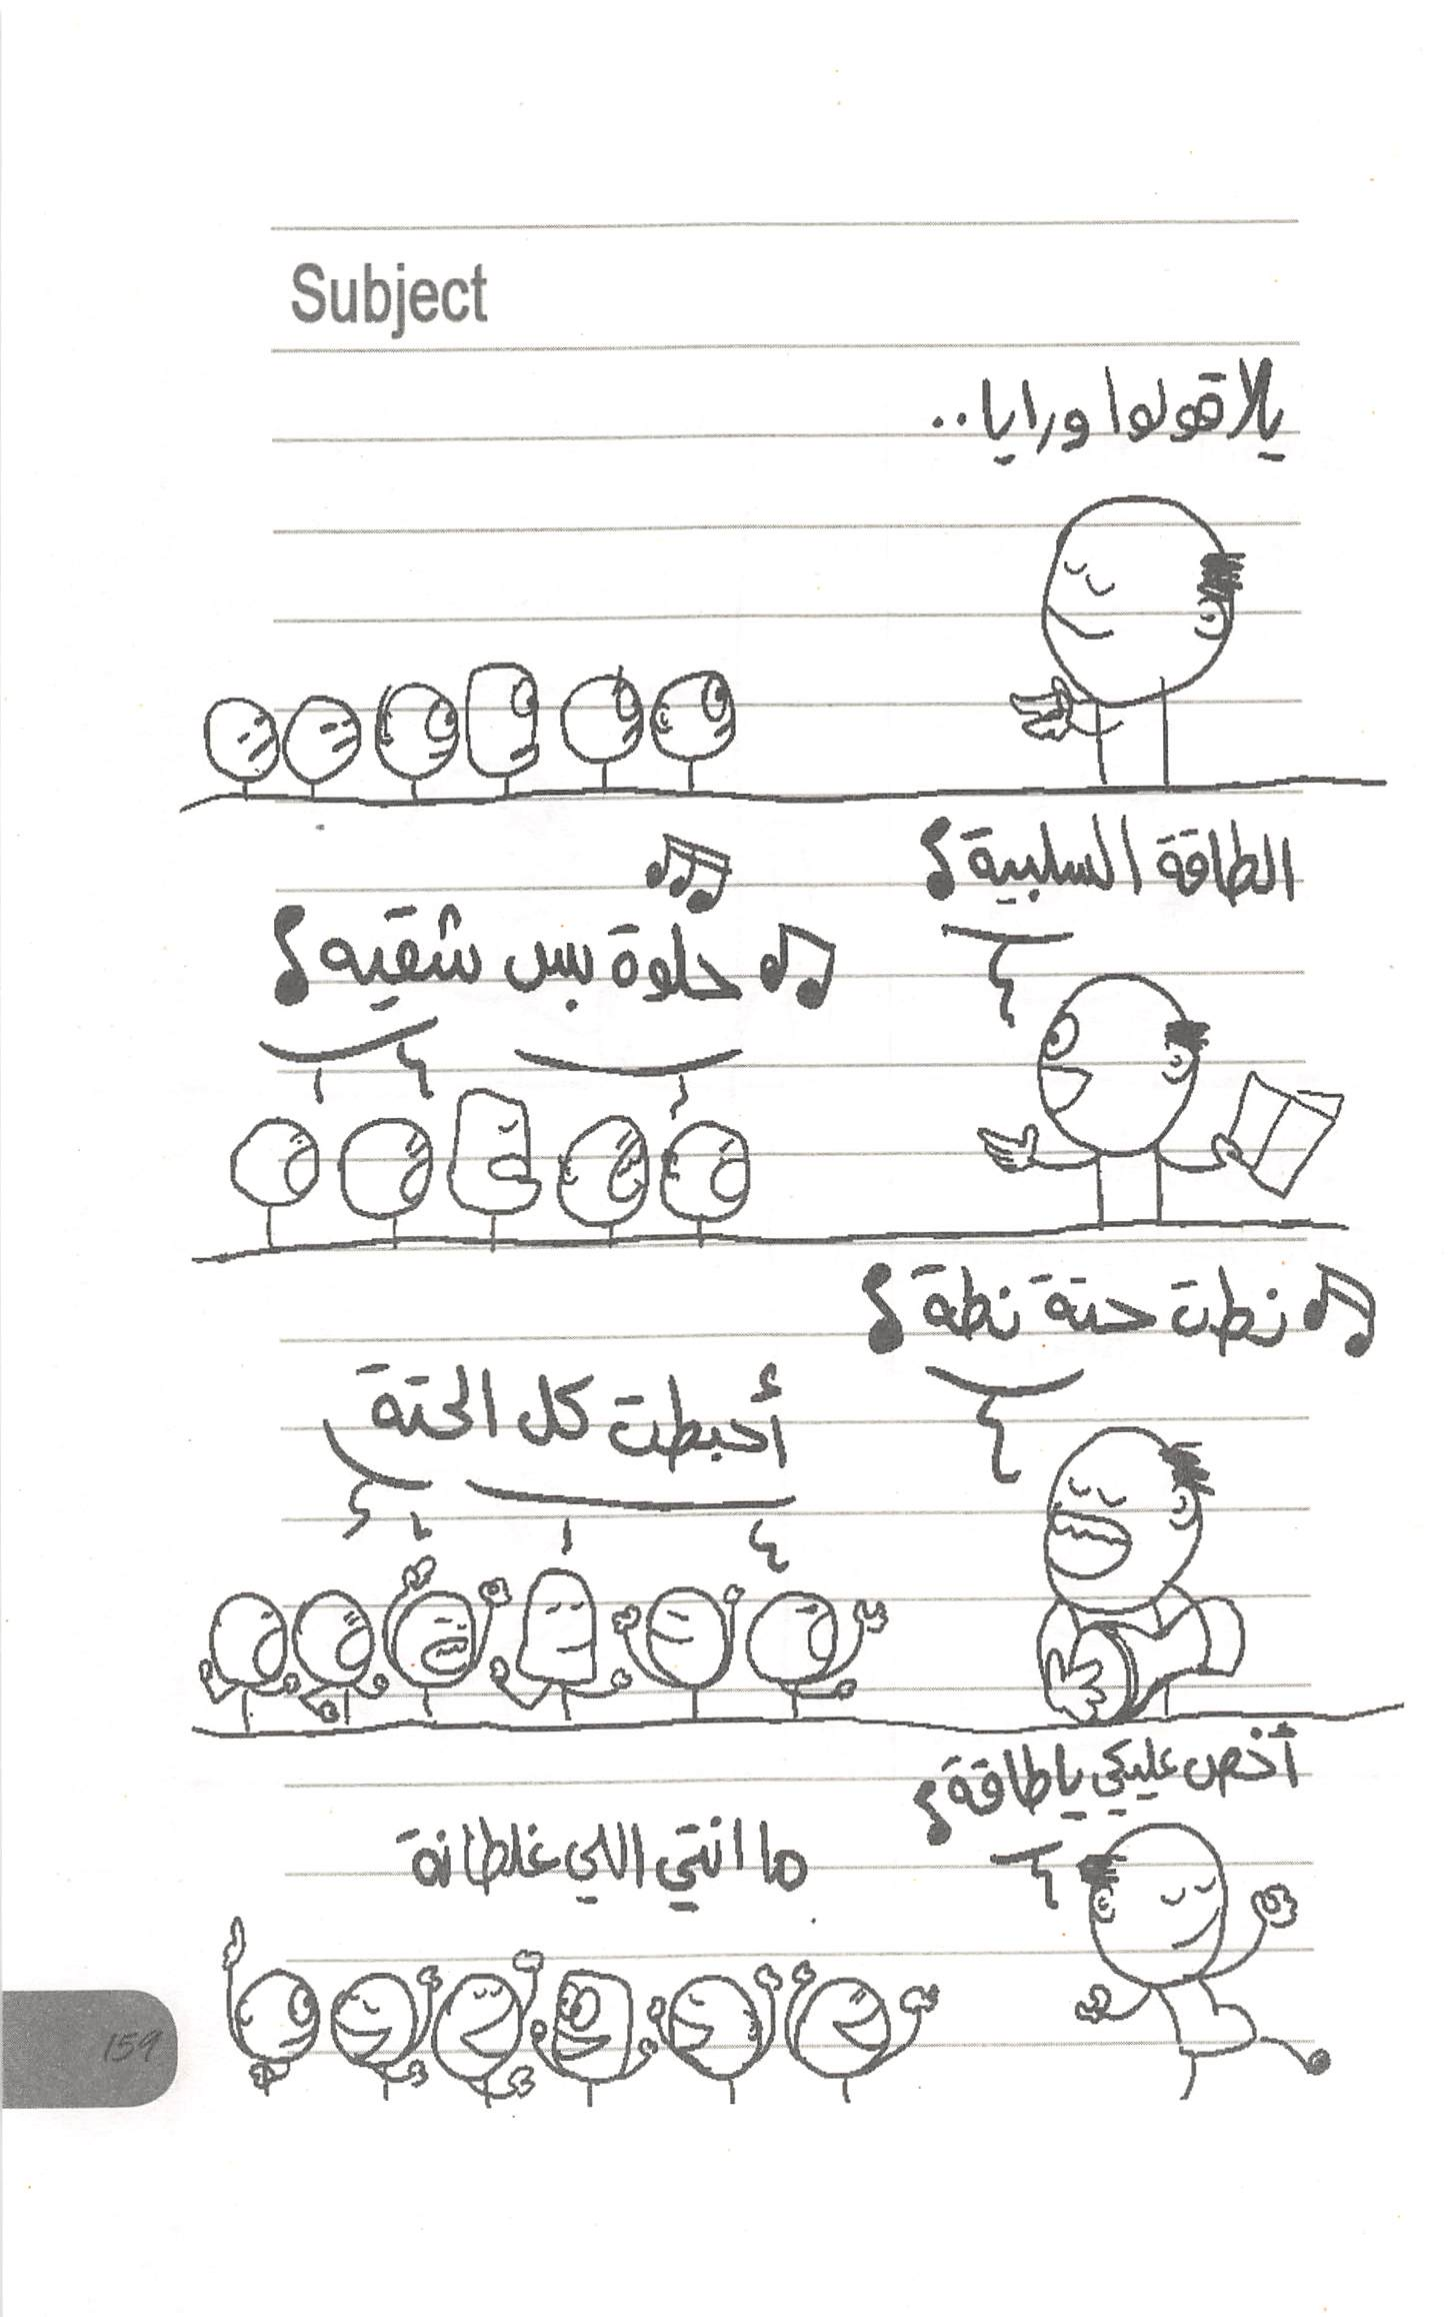 Subject
يلا قولوا ورايا..
الطاقة السلبية
حلوة بس شقيه
نطت حتة نطة
أحبطت كل الحتة
أخص عليكي يا طاقة
ما انتي اللي غلطانة
159